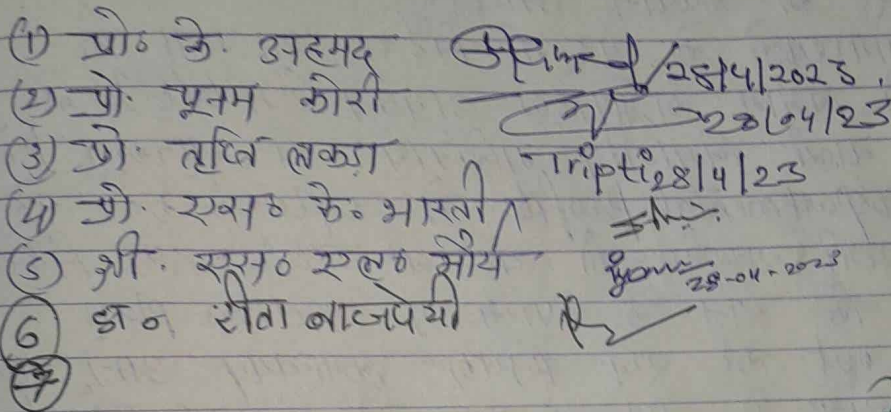 (1) प्रो० के. अहमद 28/4/2023.
(2) प्रो. पूनम कोरी 28/04/23
(3) प्रो. तृप्ति लकड़ा Tripti 28/4/23
(4) प्रो. एस० के० भारती
(5) श्री. एस० एल० मौर्य 28-04-2023
(6) डा० रीता बाजपेयी
(7)